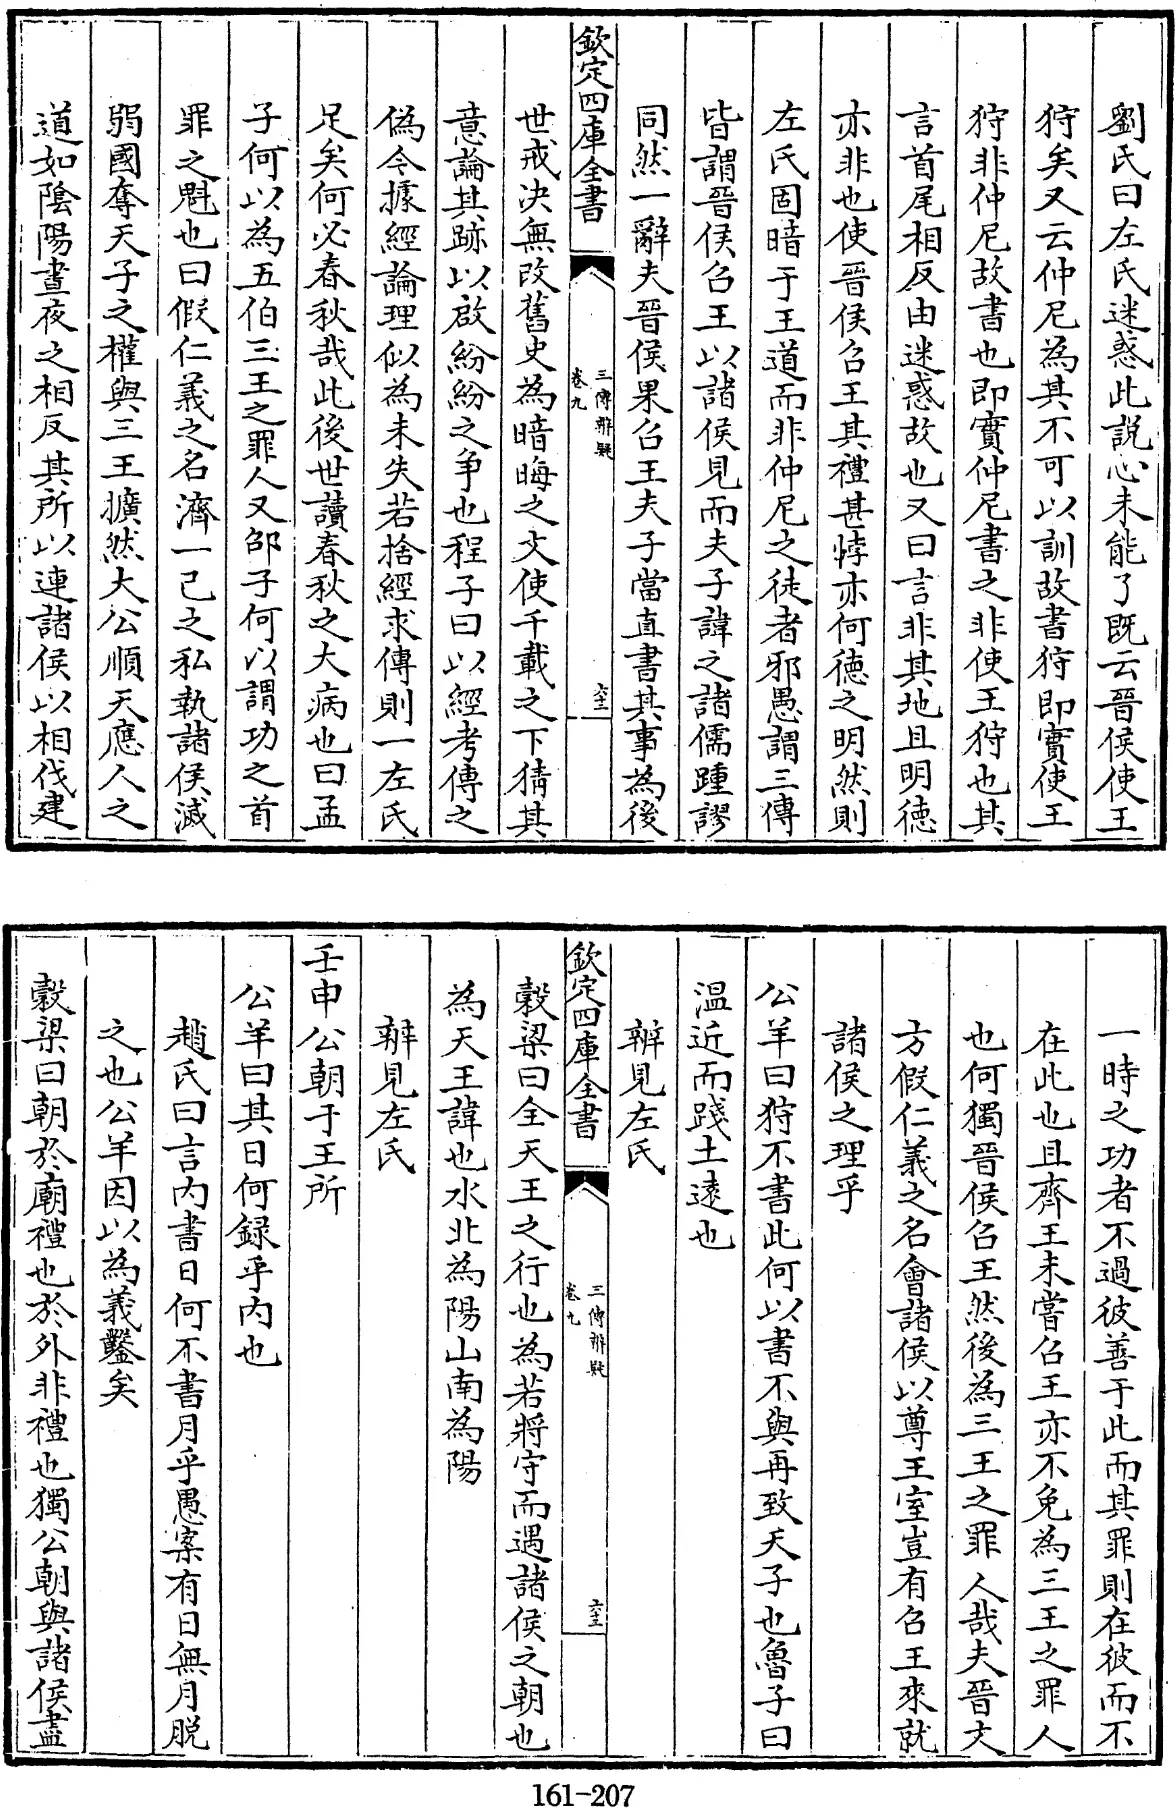 劉氏曰左氏迷惑此説心未能了既云晉侯使王
狩矣又云仲尼為其不可以訓故書狩即實使王
狩非仲尼故書也即實仲尼書之非使王狩也其
言首尾相反由迷惑故也又曰言非其地且明德
亦非也使晉侯召王其禮甚悖亦何徳之明然則
左氏固暗于王道而非仲尼之徒者邪愚謂三傳
皆謂晉侯召王以諸侯見而夫子諱之諸儒踵謬
同然一辭夫晉侯果召王夫子當直書其事為後
欽定四庫全書
三傳辨疑
卷九
六十二
世戒决無改舊史為暗晦之文使千載之下猜其
意論其跡以啟紛紛之争也程子曰以經考傳之
偽令據經論理似為未失若捨經求傳則一左氏
足矣何必春秋哉此後世讀春秋之大病也曰孟
子何以為五伯三王之罪人又邵子何以謂功之首
罪之魁也曰假仁義之名濟一己之私執諸侯滅
弱國奪天子之權與三王擴然大公順天應人之
道如陰陽晝夜之相反其所以連諸侯以相伐建
一時之功者不過彼善于此而其罪則在彼而不
在此也且齊王未嘗召王亦不免為三王之罪人
也何獨晉侯召王然後為三王之罪人哉夫晉文
方假仁義之名會諸侯以尊王室豈有召王來就
諸侯之理乎
公羊曰狩不書此何以書不與再致天子也魯子曰
温近而踐土遠也
辨見左氏
欽定四庫全書
三傳辨疑
卷九
六十三
穀梁曰全天王之行也為若將守而遇諸侯之朝也
為天王諱也水北為陽山南為陽
辨見左氏
壬申公朝于王所
公羊曰其日何録乎内也
趙氏曰言内書日何不書月乎愚案有日無月脱
之也公羊因以為義鑿矣
穀梁曰朝於廟禮也於外非禮也獨公朝與諸侯盡
161-207